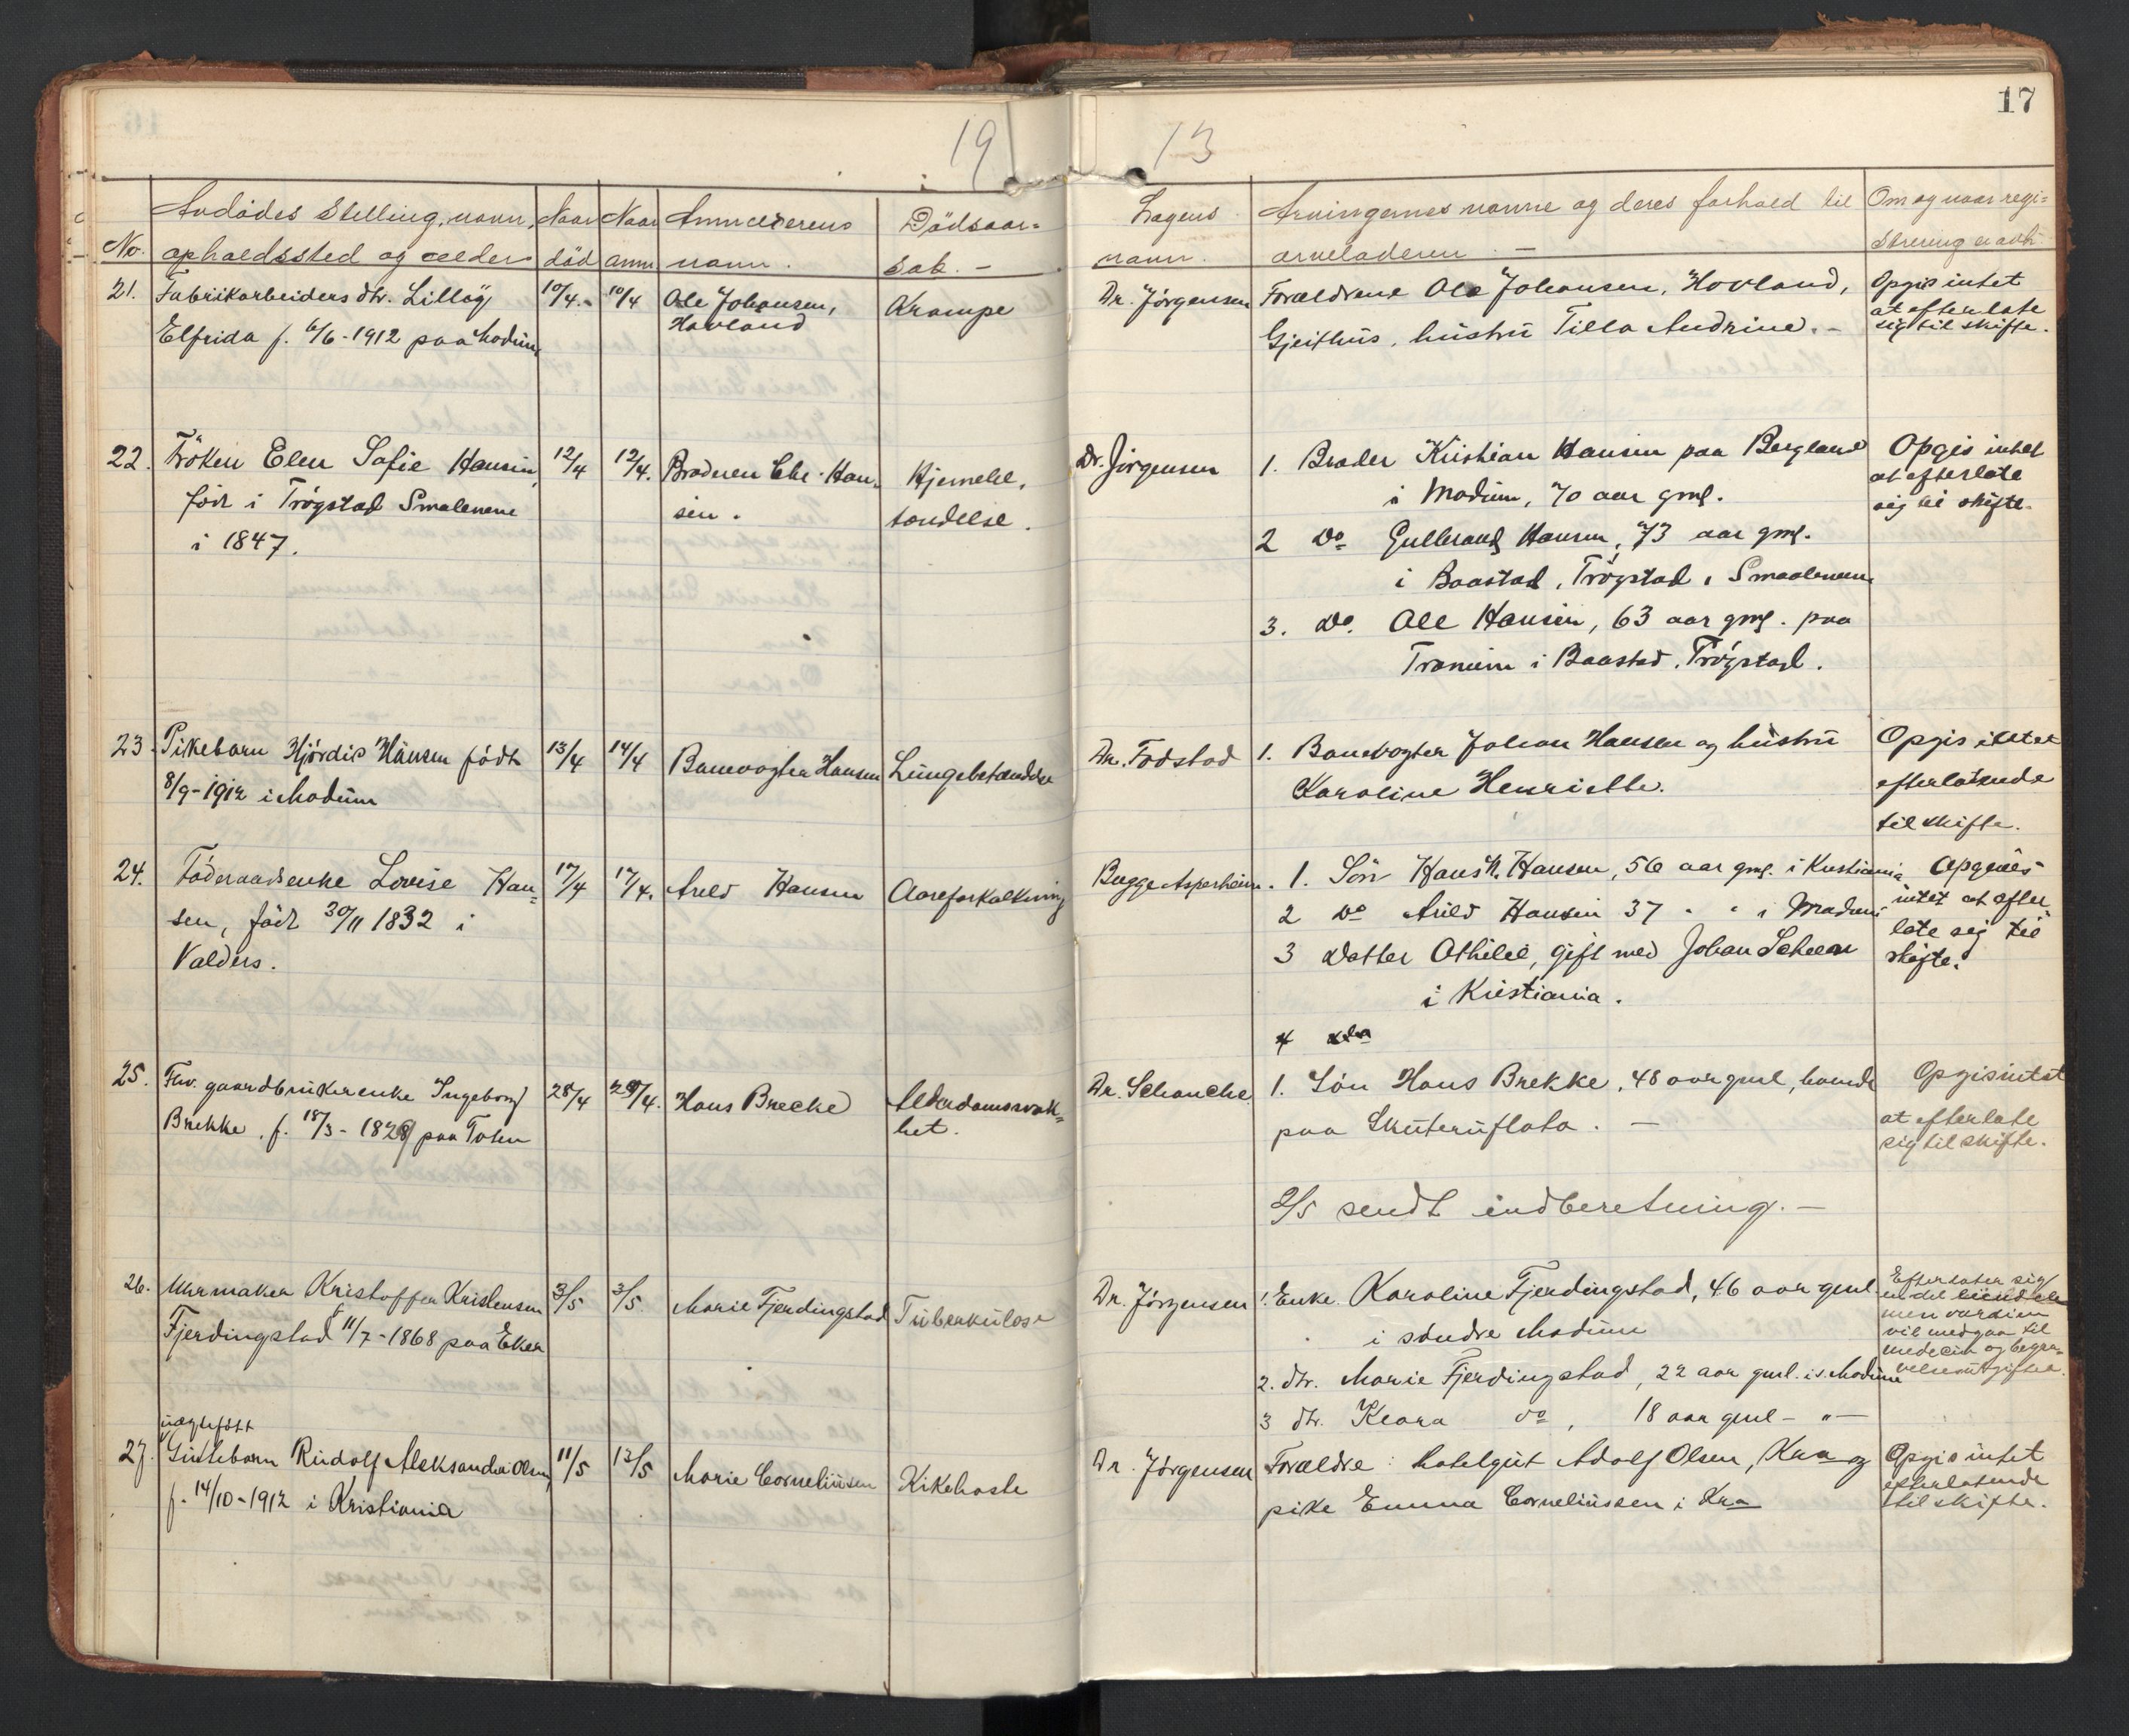 17
19 13
No. Avdødes stilling, navn, opholdssted og alder
Naar død
Naar anm.
Anmelderens navn.
Dødsaarsak. -
Lægens navn.
Arvingernes navne og deres forhold til arveladeren. -
Om og naar regi=
strering
21. Fabrikarbeiders dtr. Lilly
Elfrida f. 6/6-1912 paa Modum
10/4.- 10/4
Ole Johansen,
Hovland
Krampe
Dr. Jørgensen
Forældrene Ole Johansen, Hovland,
Gjeithus, hustru Tilla Andrine. -
Opgis intet
at efterlate
sig til skifte.
22. Frøken Elen Sofie Hansen,
født i Trøgstad Smalenene
i 1847.
12/4 12/4.
Broderen Chr. Han-
sen.
Hjernebe-
tændelse.
Dr. Jørgensen
1. Broder Kristian Hansen paa Bergland
i Modum, 70 aar gml.
2 Do Gulbrand Hansen, 73 aar gml.
i Baastad, Trøgstad, Smaalenene
3. Do. Ole Hansen, 63 aar gml. paa
i Baastad, Trøgstad.
Opgis intet
at efterlate
sig til skifte.
23. Pikebarn Hjørdis Hansen født
8/9-1912 i Modum
13/4 14/4
Banevogter Hansen
Lungebetændelse
Dr. Fodstad
1. Banevogter Johan Hansen og hustru
Karoline Henriette.
Opgis intet
efterlatende
til skifte.
24. Føderaadsenke Lovise Han=
sen, født 30/11 1832 i
Valders.
17/4 17/4.
Arild Hansen
Aareforkalkning
Bugge Asperheim.
1. Søn Hans H. Hansen, 56 aar gml. i Kristiania
2 Do Arild Hansen 37 " " i Modum
3 Datter Othilie, gift med Johan Scheen
i Kristiania.
4 do
Opgives
intet at efter
late sig til
skifte.
25. Fhv. gaardbrukerenke Ingeborg
Brekke, f. 18/3-1828 paa Toten
28/4 29/4.
Hans Brecke
Alderdomssvak=
het.
Dr. Schanche
1. Søn Hans Brekke, 48 aar gml, boende
paa Skuteruflata. -
2/5 sendt indberetning. -
Opgis intet
at efterlate
sig til skifte.
26. Uhrmaker Kristoffer Kristensen
Fjerdingstad f 11/7-1868 paa Eker
3/5 3/5.
Marie Fjerdingstad
Tuberkulose
Dr. Jørgensen
1. Enke Karoline Fjerdingstad, 46 aar gml
i søndre Modum
2. dtr. Marie Fjerdingstad, 22 aar gml. i s. Modum
3 dtr. Klara do, 18 aar gml - " -
Efterlater sig
en del
men værdien
vil medgaa til
medecin og begra-
velsesutgifter.
27. uægtefødt
Guttebarn Rudolf Aleksander Olsen,
f. 14/10-1912 i Kristiania
11/5 13/5
Marie Corneliussen
Kikhoste
Dr. Jørgensen
Forældre: hotelgut Adolf Olsen, Kra og
pike Emma Corneliussen i Kra
Opgis intet
efterlatende
til skifte.